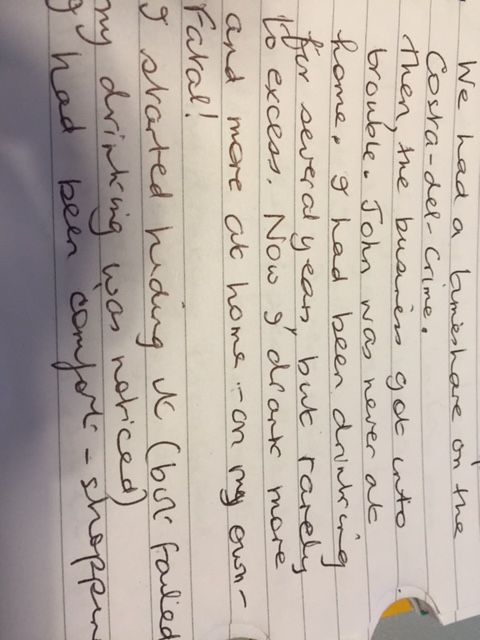 We had a timeshare on the
Costa-del-Crime.
Then, the business got into
trouble. John was never at
home. I had been drinking
for several years but rarely
to excess. Now I drank more
and more at home - on my own -
Fatal!
I started hiding it (but failed
my drinking was noticed)
I had been comfort-shoppin